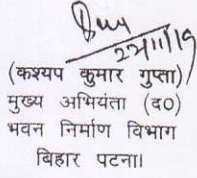 22/11/19
(कश्यप कुमार गुप्ता)
मुख्य अभियंता (द०)
भवन निर्माण विभाग
बिहार पटना।